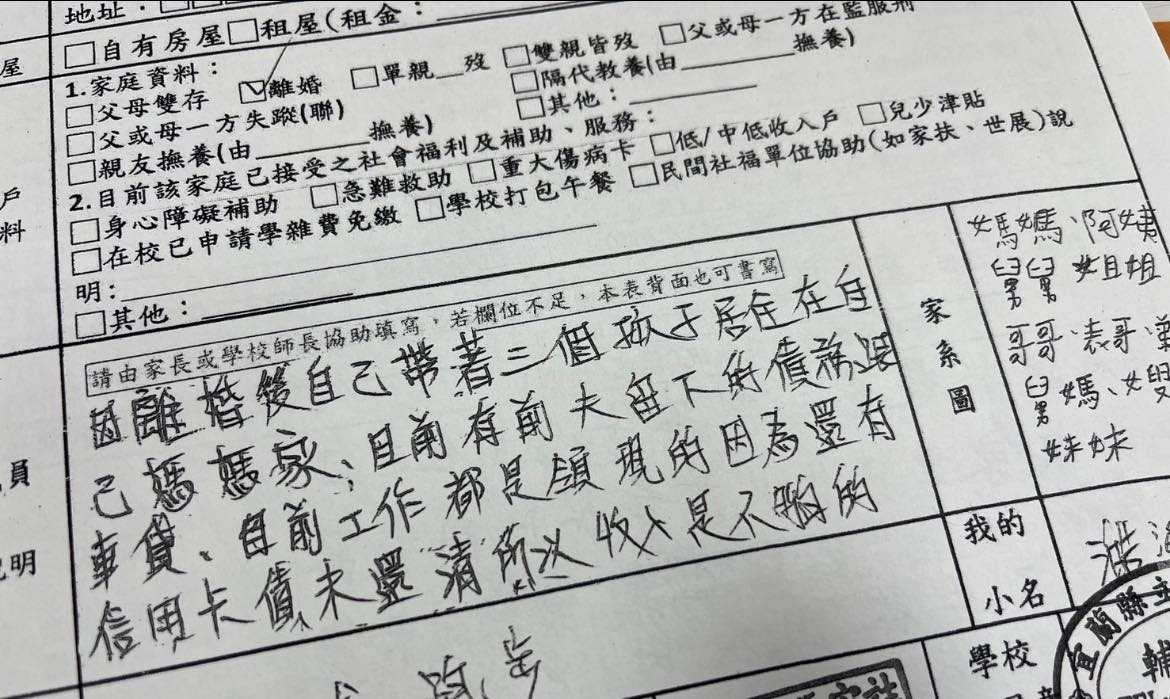 地址：
屋
□自有房屋□租屋(租金：
1.家庭資料：
□父母雙存 ☑離婚 □單親__歿 □雙親皆歿 □父或母一方在監服刑
□父或母一方失蹤(聯) □隔代教養(由________撫養)
□親友撫養(由________撫養) □其他：________
2.目前該家庭已接受之社會福利及補助、服務：
□身心障礙補助 □急難救助 □重大傷病卡 □低/中低收入戶 □兒少津貼
□在校已申請學雜費免繳 □學校打包午餐 □民間社福單位協助(如家扶、世展)說
明：________
□其他：________
戶
料
請由家長或學校師長協助填寫，若欄位不足，本表背面也可書寫
因離婚後自己帶著三個孩子居住在自
己媽媽家、目前有前夫留下的債務還
車貸、目前工作都是領現的因為還有
信用卡債未還清所以收入是不夠的
員
明
家系圖
媽媽、阿姨
舅舅 姐姐
哥哥、表哥、
舅媽、
妹妹
我的
小名
浩
學校
宜蘭縣
輔